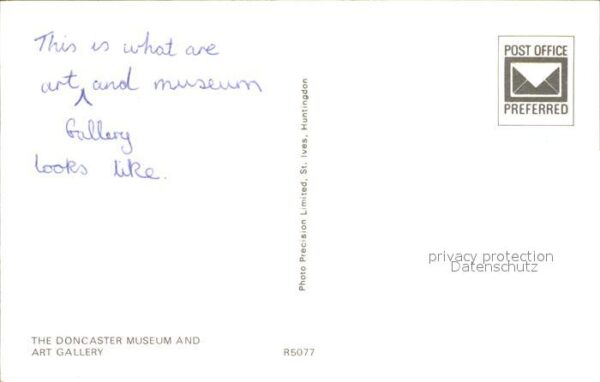 This is what are
art ^ and museum
Gallery
looks like.
POST OFFICE
PREFERRED
Photo Precision Limited, St. Ives, Huntingdon
privacy protection
Datenschutz
THE DONCASTER MUSEUM AND
ART GALLERY
R5077